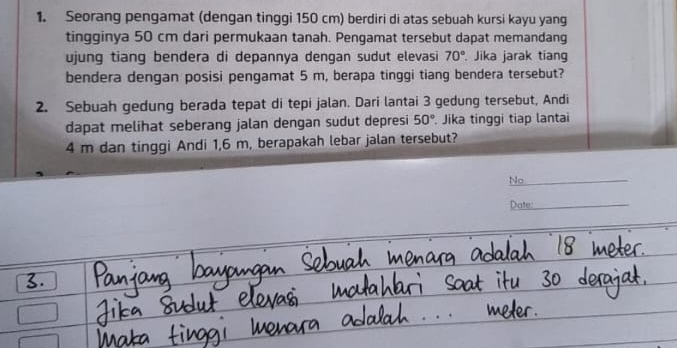 1. Seorang pengamat (dengan tinggi 150 cm) berdiri di atas sebuah kursi kayu yang
tingginya 50 cm dari permukaan tanah. Pengamat tersebut dapat memandang
ujung tiang bendera di depannya dengan sudut elevasi 70°. Jika jarak tiang
bendera dengan posisi pengamat 5 m, berapa tinggi tiang bendera tersebut?
2. Sebuah gedung berada tepat di tepi jalan. Dari lantai 3 gedung tersebut, Andi
dapat melihat seberang jalan dengan sudut depresi 50°. Jika tinggi tiap lantai
4 m dan tinggi Andi 1,6 m, berapakah lebar jalan tersebut?
No.
Date:
3. Panjang bayangan sebuah menara adalah 18 meter.
Jika sudut elevasi matahari saat itu 30 derajat,
maka tinggi menara adalah ... meter.